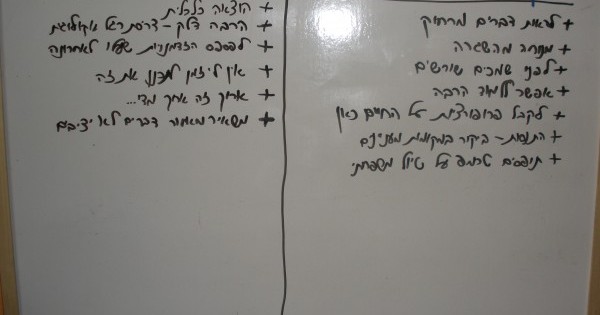 + לראות דברים מרחוק
+ מנוחה מהשגרה
+ לפני שמכים שורשים
+ אפשר ללמוד הרבה
+ לקבל פרופורציות על החיים כאן
+ התנסות – ביקור במקומות מעניינים
+ תופסים טרמפ על טיול משפחתי
+ הוצאה כלכלית
+ הרבה דלק – דריסת רגל אקולוגית
+ לפספס הזדמנויות לאחרונה
+ אין לי זמן לתכנן את זה
+ ארוך זה ארוך מדי...
+ משאיר מאחור דברים לא יציבים